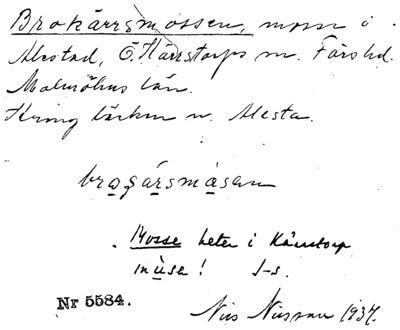 Brokärrsmossen, mosse i
Alestad, Ö. Kärrstorps sn. Färs hd.
Malmöhus län.
Kring bäcken v. Alesta.
brogársmåsan
Mosse heter i Kärrstorp
mùse! J-s.
Nr 5584.
Nils Nilsson 1937.